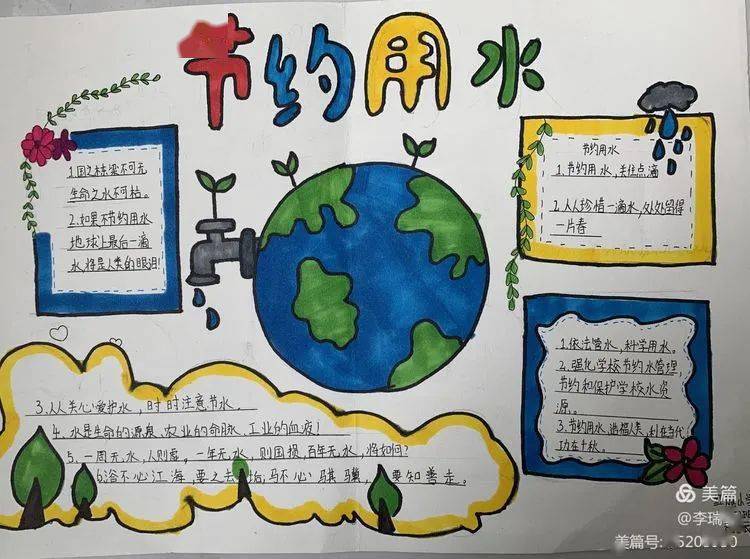 节约用水
1.国之栋梁不可无
生命之水不可枯。
2.如果不节约用水
地球上最后一滴
水,将是人类的眼泪!
节约用水
1.节约用水,关住点滴
2.人人珍惜一滴水,处处留得
一片春
1.依法管水,科学用水。
2.强化学校节约水管理
节约和保护学校水资
源。
3.节约用水,造福人类,利在当代
功在千秋。
3.人人关心爱护水,时时注意节水.
4.水是生命的源泉、农业的命脉、工业的血液!
5.一周无水,人则忧。一年无水,则国损,百年无水,将如何?
6浴不心江海,要之去垢;马不心骐骥,要知善走。
美篇
@李瑞
美篇号:520